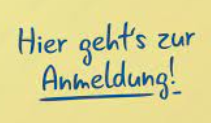 Hier geht's zur
Anmeldung!